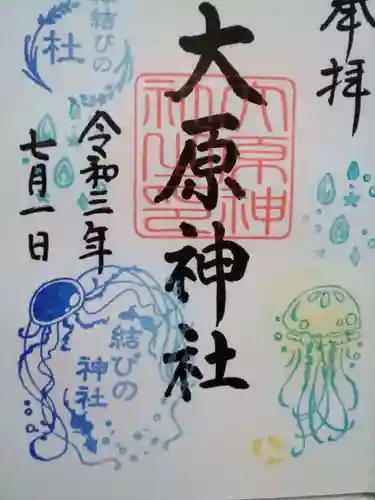 奉拝
大原神社
大原神社之印
令和三年
七月一日
縁結びの
杜
結びの
神社